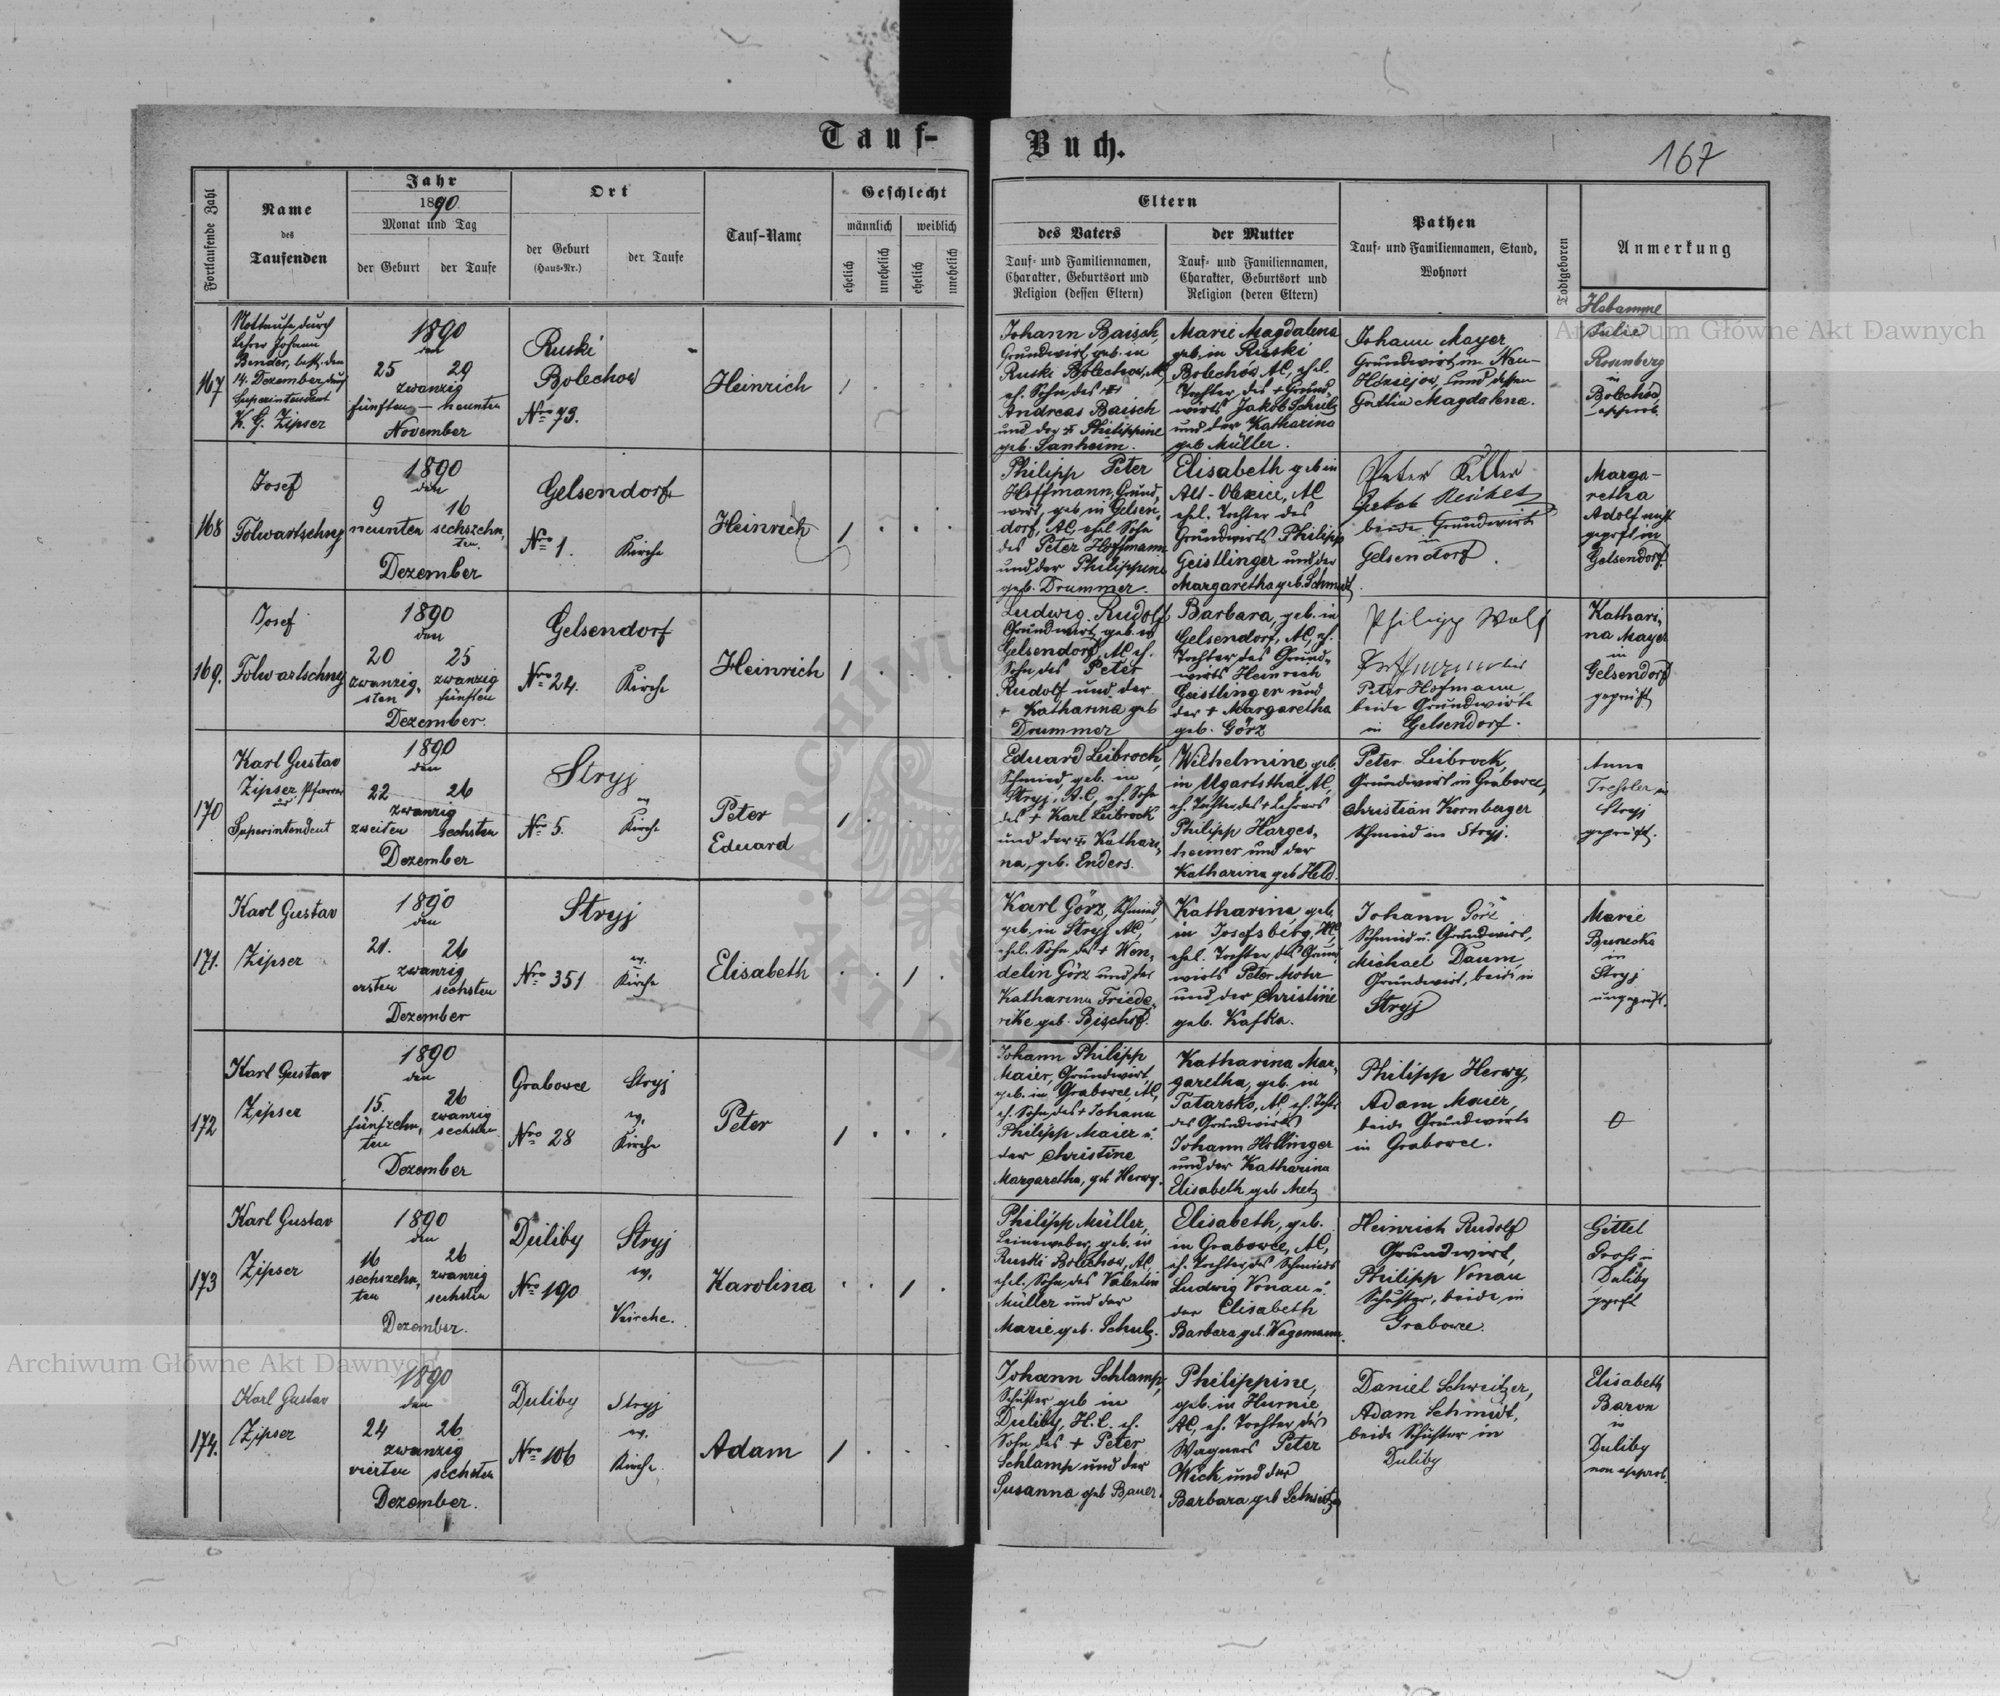 Tauf-
Buch.
167
Fortlaufende Zahl
Name
des
Taufenden
Jahr
1890.
Monat und Tag
der Geburt
der Taufe
Ort
der Geburt
(Haus-Nr.)
der Taufe
Tauf-Name
Geschlecht
männlich
weiblich
ehelich
unehelich
ehelich
unehelich
Eltern
des Vaters
Tauf- und Familiennamen,
Charakter, Geburtsort und
Religion (dessen Eltern)
der Mutter
Tauf- und Familiennamen,
Charakter, Geburtsort und
Religion (deren Eltern)
Pathen
Tauf- und Familiennamen, Stand,
Wohnort
Todtgeboren
Anmerkung
Hebamme
167
Nottaufe durch
Lehrer Johann
Bender, best. den
14. Dezember durch
Superintendent
K. G. Zipser
1890
den
25 29
zwanzig
fünften – neunten
November
Ruski
Bolechow
Nro 73.
Heinrich
1
Johann Baisch,
Grundwirt, geb. in
Ruski Bolechow, AC,
eh. Sohn des +
Andreas Baisch
und der + Philippine
geb. Sanheim.
Marie Magdalena
geb. in Ruski
Bolechow AC, ehel.
Tochter des + Grund-
wirts Jakob Schulz
und der Katharina
geb. Müller.
Johann Mayer
Grundwirt in Neu-
und dessen
Gattin Magdalena.
Julie
Rosenberg
in
Bolechow,
approb.
168
Josef
Folwartschny
1890
den
9 16
neunten sechszehn-
ten.
Dezember
Gelsendorf
Nro 1. Kirche
Heinrich
1
Philipp Peter
Hoffmann, Grund-
wirt, geb. in Gelsen-
dorf, AC, ehel. Sohn
des Peter Hoffmann
und der Philippine
geb. Drummer.
Elisabeth geb. in
Alt-Olexice, AC
ehel. Tochter des
Grundwirts Philipp
Geistlinger und der
Margaretha geb. Schmidt
Peter Keller
Jakob
beide Grundwirte
in
Gelsendorf.
Marga-
retha
Adolf nicht
geprft in
Gelsendorf.
169.
Josef
Folwartschny
1890
den
20 25
zwanzig- zwanzig
sten fünften
Dezember.
Gelsendorf
Nro 24. Kirche
Heinrich
1
Ludwig Rudolf
Grundwirt, geb. in
Gelsendorf, AC eh.
Sohn des Peter
Rudolf und der
+ Katharina geb.
Drummer
Barbara, geb. in
Gelsendorf, AC, eh.
Tochter des Grund-
wirts Heinrich
Geistlinger und
der + Margaretha
geb. Görz
Philipp Wolf
Peter Hofmann,
beide Grundwirte
in Gelsendorf.
Kathari-
na Mayer
in
Gelsendorf
geprüft
170
Karl Gustav
Zipser, Pfarrer
Superintendent
1890
den
22 26
zwanzig
zweiten sechsten
Dezember
Stryj
ev.
Nro 5. Kirche
Peter
Eduard
1
Eduard Leibrock,
Schmied, geb. in
Stryj, A.C., eh. Sohn
des + Karl Leibrock
und der + Kathari-
na, geb. Enders.
Wilhelmine, geb.
in Ugartsthal AC,
eh. Tochter des + Lehrers
Philipp Harges-
heimer und der
Katharina geb. Held.
Peter Leibrock,
Grundwirt in Grabowce,
Christian Kornberger
Schmied in Stryj.
Anna
in
Stryj
geprüft.
171.
Karl Gustav
Zipser
1890
den
21. 26
zwanzig
ersten sechsten
Dezember
Stryj
ev.
Nro 351 Kirche
Elisabeth
1
Karl Görz, Schmied,
geb. in Stryj AC,
ehel. Sohn des + Wen-
delin Görz und der
Katharina Friede-
rike geb. Bischof.
Katharina, geb.
in Josefsberg, AC,
ehel. Tochter des Grund-
wirts Peter Mohr
und der Christine
geb. Kafka.
Johann Görz
Schmied u. Grundwirt,
Michael Daum,
Grundwirt, beide in
Stryj
Marie
in
Stryj
ungeprüft.
172
Karl Gustav
Zipser
1890
den
15. 26
fünfzehn- zwanzig
ten sechsten
Dezember
Grabowce Stryj
ev.
Nro 28 Kirche
Peter
1
Johann Philipp
Maier, Grundwirt,
geb. in Grabowce, AC,
eh. Sohn des + Johann
Philipp Maier u.
der Christine
Margaretha, geb. Herwy.
Katharina Mar-
garetha, geb. in
Tatarsko, AC, eh. Tochter
des Grundwirts
Johann Hollinger
und der Katharina
Elisabeth geb. Metz
Philipp Herwy,
Adam Maier,
beide Grundwirte
in Grabowce.
0
173
Karl Gustav
Zipser
1890
den
16 26
sechszehn- zwanzig
ten sechsten
Dezember.
Duliby Stryj
ev.
Nro 190
Kirche.
Karolina
1
Philipp Müller,
Leineweber, geb. in
Ruski Bolechow, AC,
ehel. Sohn des Valentin
Müller und der
Marie, geb. Schulz.
Elisabeth, geb.
in Grabowce, AC,
eh. Tochter des Schmieds
Ludwig Vonau u.
der Elisabeth
Barbara geb. Wagemann.
Heinrich Rudolf
Grundwirt,
Philipp Vonau
Schuster, beide in
Grabowce.
Gittel
in
Duliby
geprft
174.
Karl Gustav
Zipser
1890
den
24 26
zwanzig
vierten sechsten
Dezember.
Duliby Stryj
ev.
Nro 106 Kirche.
Adam
1
Johann Schlamp,
Schuster geb. in
Duliby, H.C. eh.
Sohn des + Peter
Schlamp und der
Susanna geb. Bauer.
Philippine,
geb. in Hurnie,
AC, eh. Tochter des
Wagners Peter
Wick und der
Barbara geb. Schweitzer
Daniel Schweitzer,
Adam Schmidt,
beide Schuster in
Duliby
Elisabeth
Baron
in
Duliby
non approb.
Archiwum Główne Akt Dawnych
Archiwum Główne Akt Dawnych